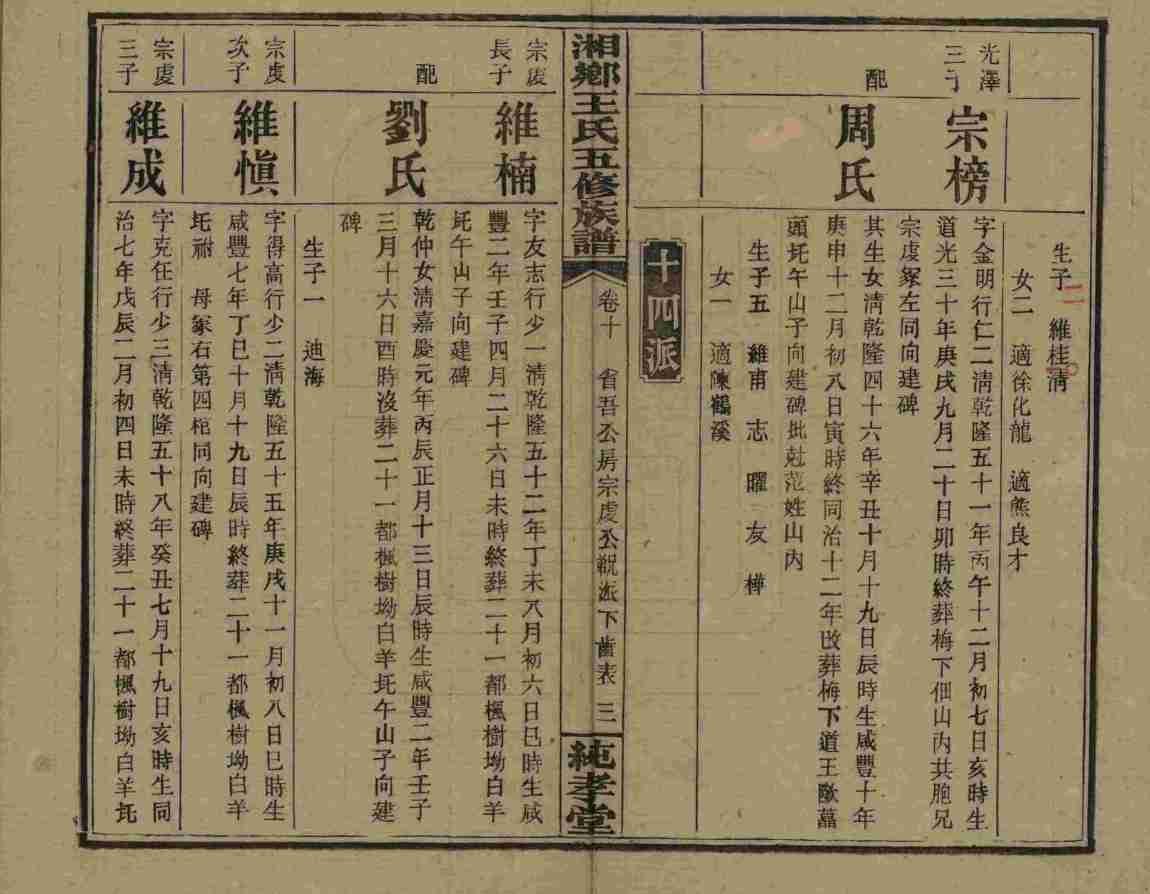 生子二 維桂清
女二 適徐化龍 適熊良才
光澤
三子
宗榜
字金明行仁二淸乾隆五十一年丙午十二月初七日亥時生
道光三十年庚戌九月二十日卯時終葬梅下佃山內共胞兄
宗虔冢左同向建碑
配
周氏
其生女淸乾隆四十六年辛丑十月十九日辰時生咸豐十年
庚申十二月初八日寅時終同治十二年改葬梅下道王歐墓
頭圫午山子向建碑批尅范姓山內
生子五 維甫 志 曜 友 樺
女一 適陳鶴溪
十四派
湘鄉王氏五修族譜
卷十 省吾公房宗虔公祝派下齒表 三
純孝堂
宗虔
長子
維楠
字友志行少一淸乾隆五十二年丁未八月初六日巳時生咸
豐二年壬子四月二十六日未時終葬二十一都楓樹坳白羊
圫午山子向建碑
配
劉氏
乾仲女淸嘉慶元年丙辰正月十三日辰時生咸豐二年壬子
三月十六日酉時沒葬二十一都楓樹坳白羊圫午山子向建
碑
生子一 迪海
宗虔
次子
維愼
字得高行少二淸乾隆五十五年庚戌十一月初八日巳時生
咸豐七年丁巳十月十九日辰時終葬二十一都楓樹坳白羊
圫祔 母冢右第四棺同向建碑
宗虔
三子
維成
字克任行少三淸乾隆五十八年癸丑七月十九日亥時生同
治七年戊辰二月初四日未時終葬二十一都楓樹坳白羊圫